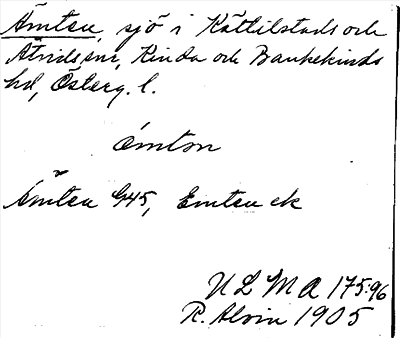 Ämten, sjö i Kättilstads och
Åtvids snr, Kinda och Bankekinds
hd, Österg. l.
ämton
Ämten G45, Emten ek
ULMA 175:96
R. Alvin 1905